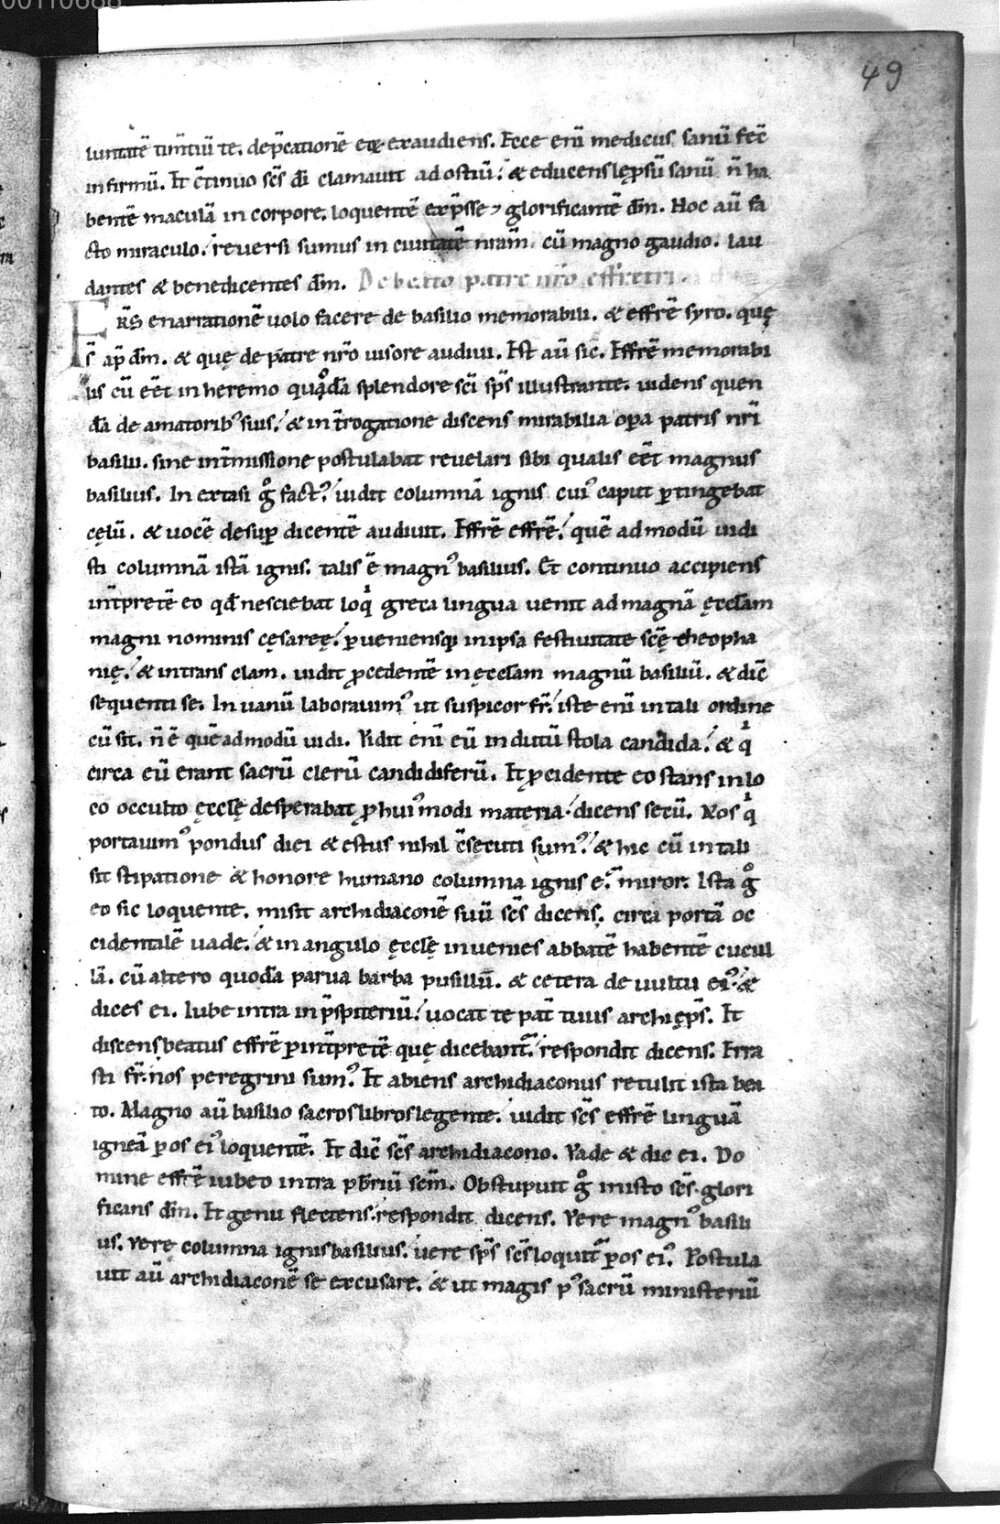 00110688
49
luntatē timētiū te. dep̄cationē eoꝝ exaudiens. Ecce eni medicus sanū fec̄
infirmū. Et c̄tinuo scs̄ di clamauit ad ostiū. & educens lep̄sū sanū n̄ ha
bentē maculā in corpore. loquentē exp̄sse ⁊ glorificantē dm̄. Hoc aū fa
cto miraculo. reuersi sumus in ciuitatē nrām cū magno gaudio. lau
dantes & benedicentes dm̄. De beato patre nr̄o effrem.
FRS enarrationē uolo facere de basilio memorabili. & effrē syro. quę
s̄ ap̄ dm̄. & quę de patre nr̄o uisore audiui. Est aū sic. Effrē memorabi
lis cū eēt in heremo quadā splendore sci sps̄ illustrante. uidens quen
dā de amatoribꝰ suis. & int̄rogatione discens mirabilia opa patris nr̄i
basilii. sine int̄missione postulabat reuelari sibi qualis eēt magnus
basilius. In extasi gͦ factꝰ. uidit columnā ignis cuiꝰ caput ꝑtingebat
cęlū. & uocē desup dicentē audiuit. Effrē effrē. quē ad modū uidi
sti columnā istā ignis. talis ē magnꝰ basilius. Et continuo accipiens
int̄pretē eo qđ nesciebat loqͥ greca lingua uenit ad magnā ęccłam
magni nominis cęsareę. ꝑueniensqꝫ in ipsa festiuitate scę̄ theopha
nię. & intrans clam. uidit ꝓcedentē in ęccłam magnū basiliū. & dic̄
sequenti se. In uanū laborauimꝰ ut suspicor fr̄. iste eni in tali ordine
cū sit. n̄ ē quē ad modū uidi. Vidit eni eū indutū stola candida. & qͥ
circa eū erant sacrū clerū candidiferū. Et ꝓcidente eo stans in lo
co occulto ęcclę desperabat ꝓ huiꝰmodi materia. dicens secū. Nos qͥ
portauimꝰ pondus diei & estus nihil c̄secuti sumꝰ. & hic cū in tali
sit stipatione & honore humano columna ignis ē. miror. Ista gͦ
eo sic loquente. misit archidiaconē suū scs̄ dicens. circa portā oc
cidentalē uade. & in angulo ęcclę inuenies abbatē habentē cucul
lā. cū altero quodā parua barba pusillū. & cetera de uultu eiꝰ. &
dices ei. Iube intra in p̄spiteriū. uocat te pat̄ tuus archiepr̄s. Et
discens beatus effrē ꝑ int̄pretē quę dicebant̄. respondit dicens. Erra
sti fr̄. nos peregrini sumꝰ. Et abiens archidiaconus retulit ista bea
to. Magno aū basilio sacros libros legente. uidit scs̄ effrē linguā
igneā ꝑ os eiꝰ loquentē. Et dic̄ scs̄ archidiacono. Vade & dic ei. Do
mine effrē iubeo intra pb̄riū scm̄. Obstupuit gͦ in isto scs̄. glori
ficans dm̄. Et genu flectens. respondit dicens. Vere magnꝰ basili
us. vere columna ignis basilius. uere sps̄ scs̄ loquit̄ ꝑ os eiꝰ. Postula
uit aū archidiaconē se excusare. & ut magis pꝰ sacrū ministeriū